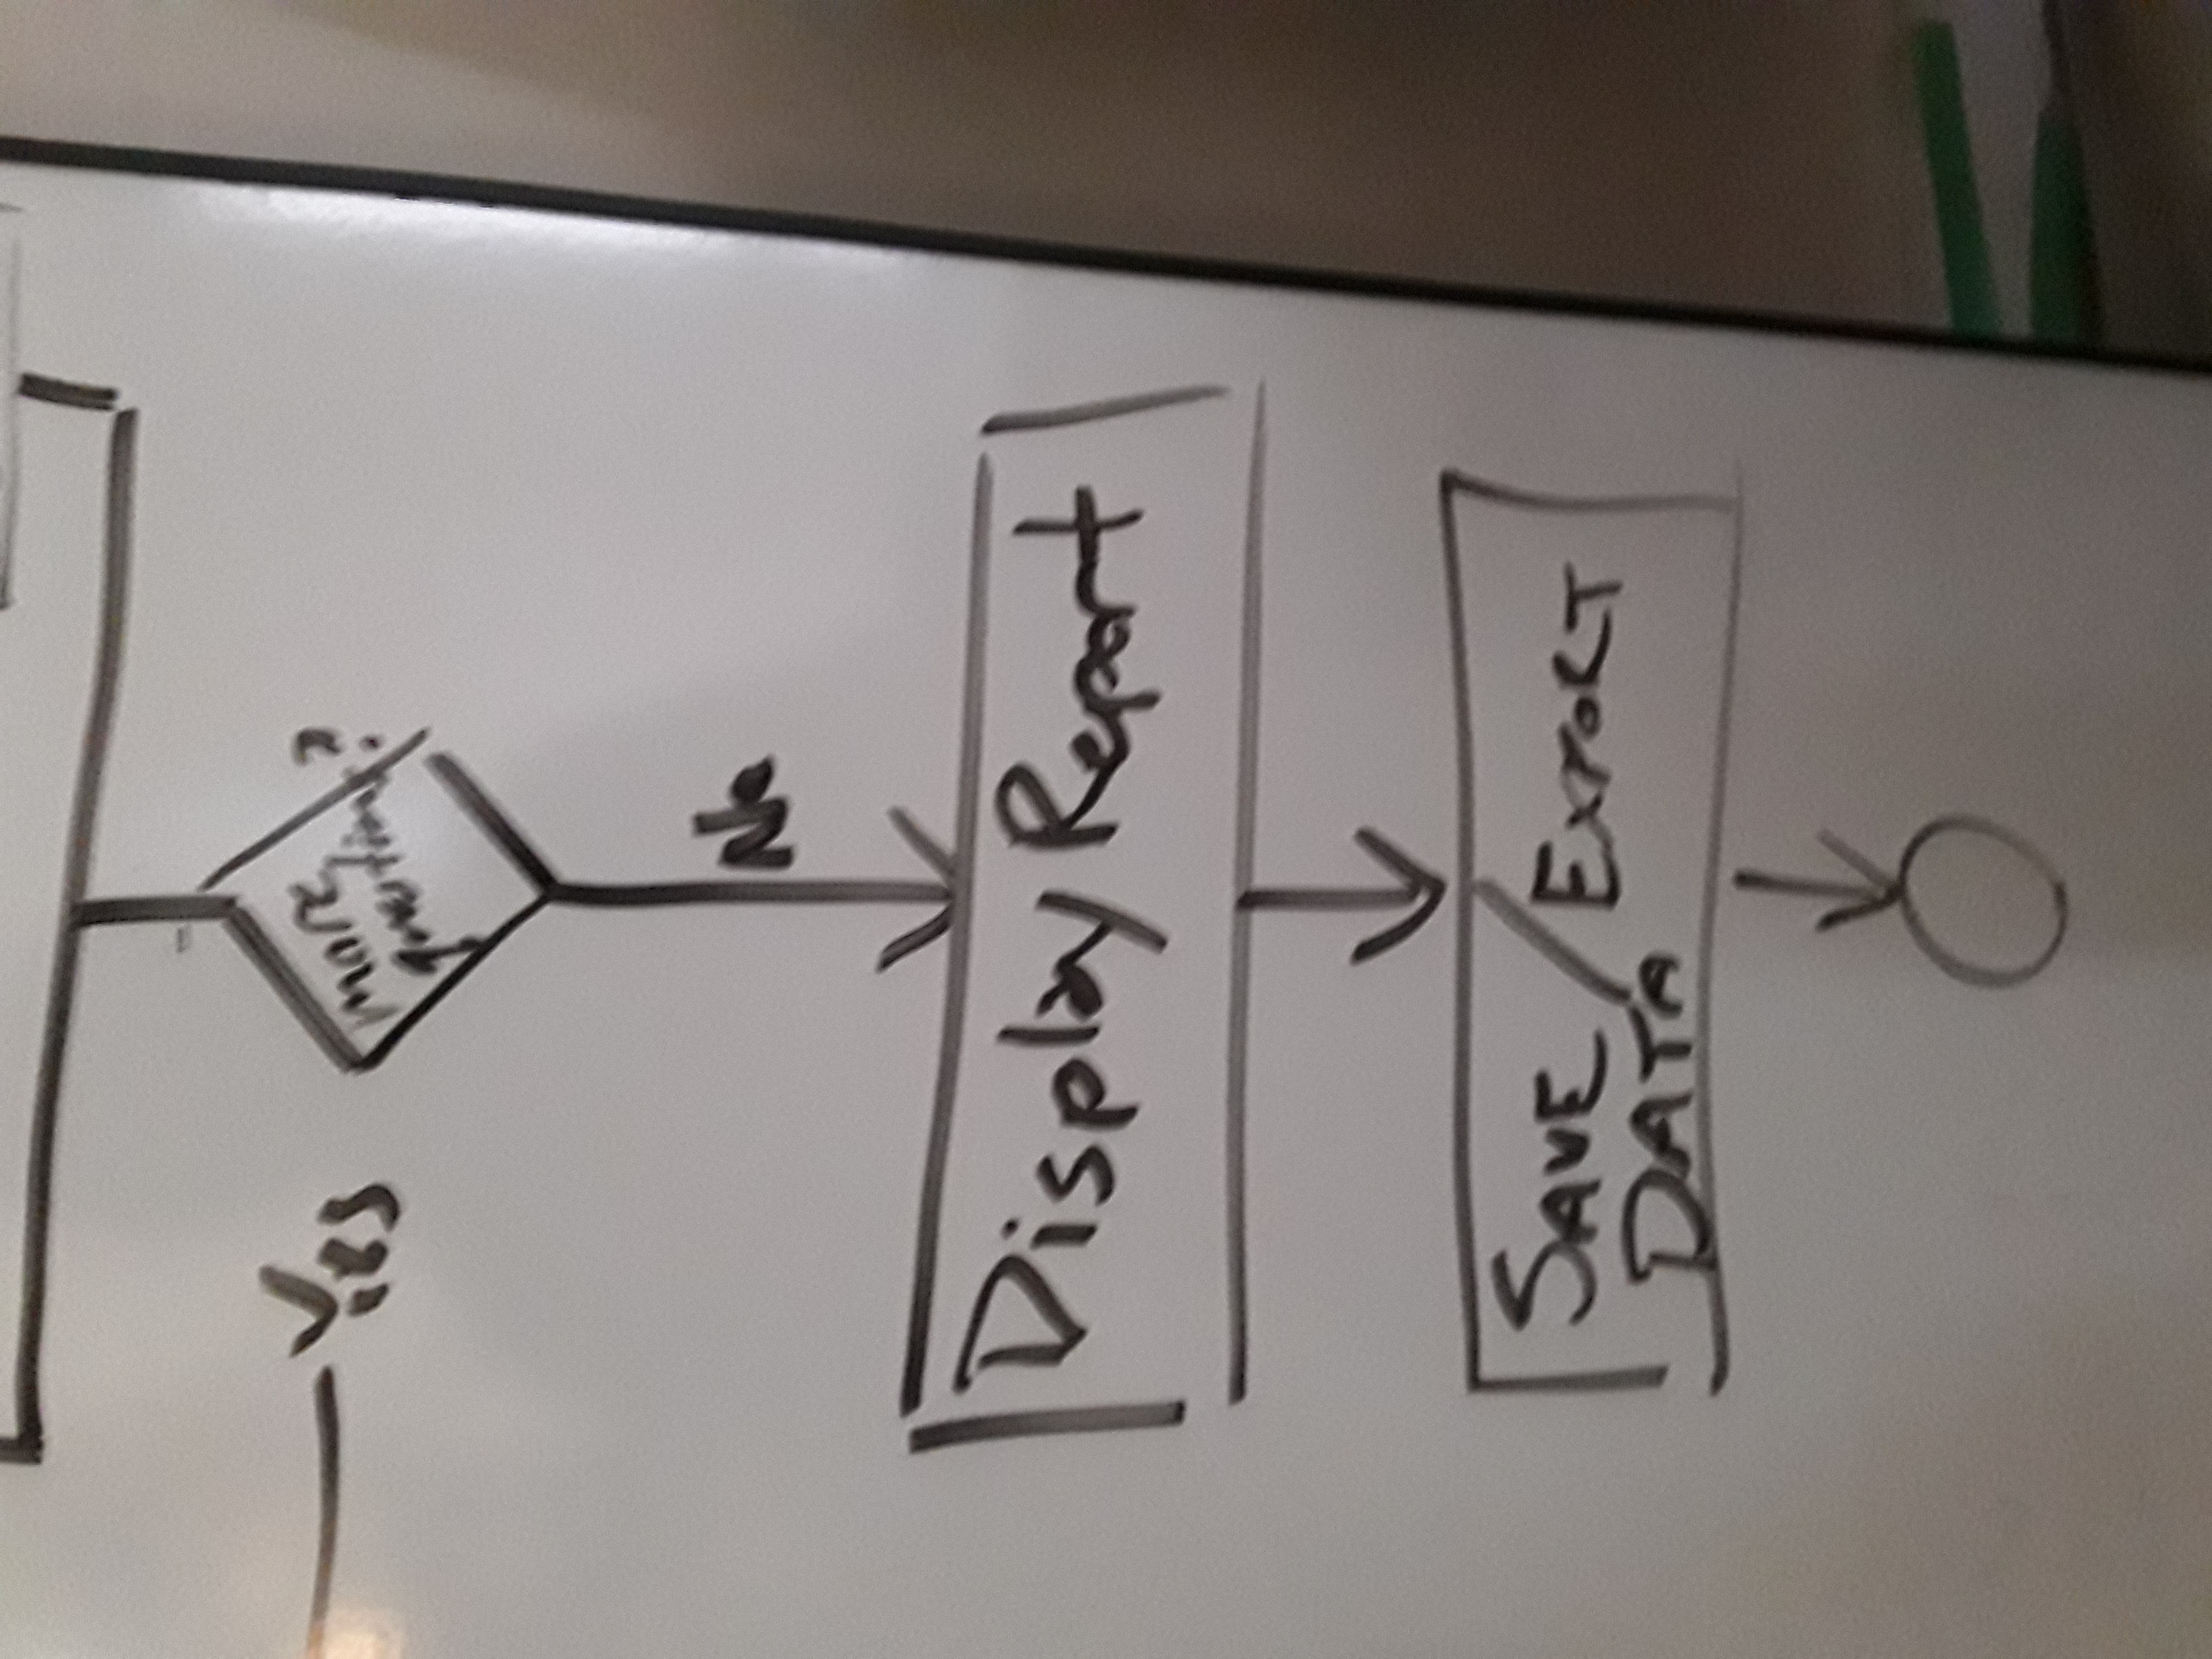 Yes
more
questions?
No
Display Report
SAVE / EXPORT
DATA